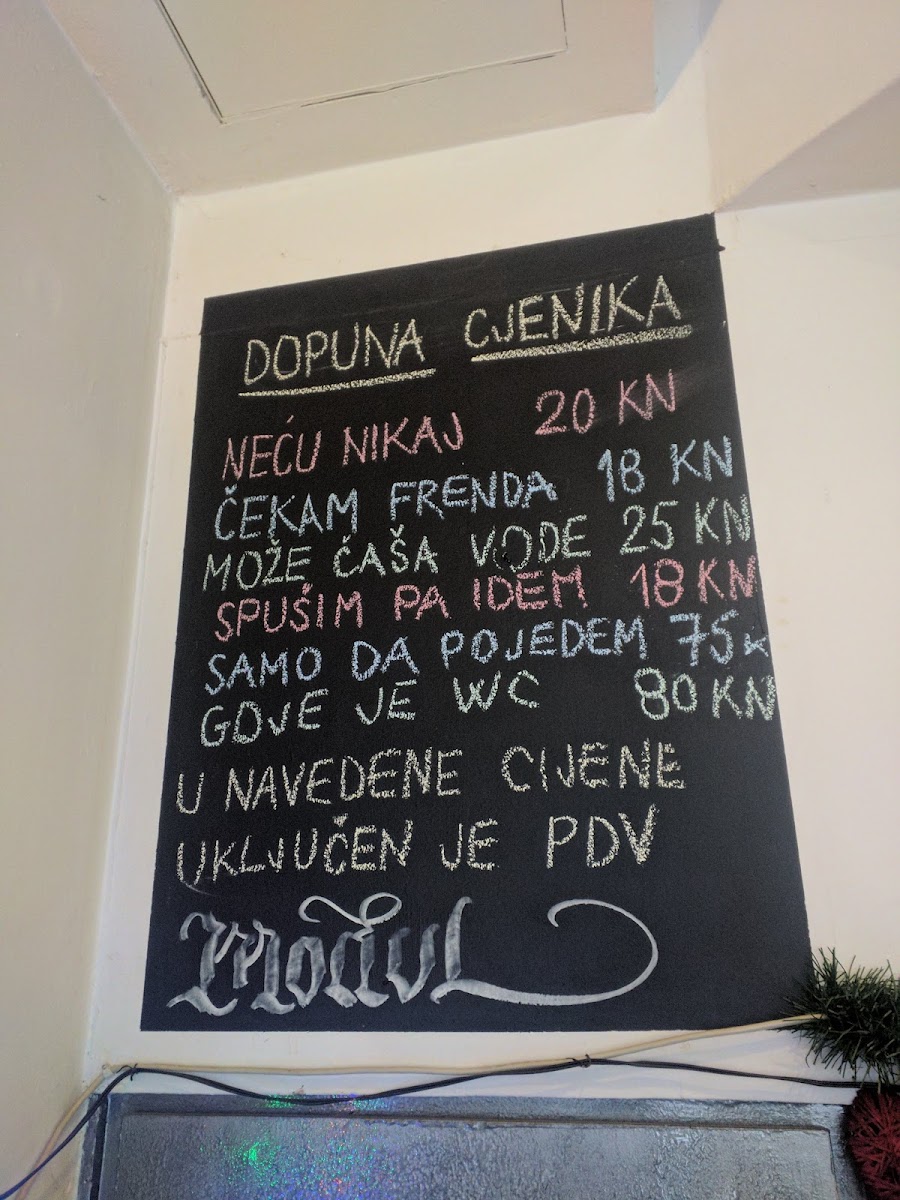 DOPUNA CJENIKA
NEĆU NIKAJ 20 KN
ČEKAM FRENDA 18 KN
MOŽE ČAŠA VODE 25 KN
SPUŠIM PA IDEM 18 KN
SAMO DA POJEDEM 75K
GDJE JE WC 80 KN
U NAVEDENE CIJENE
UKLJUČEN JE PDV